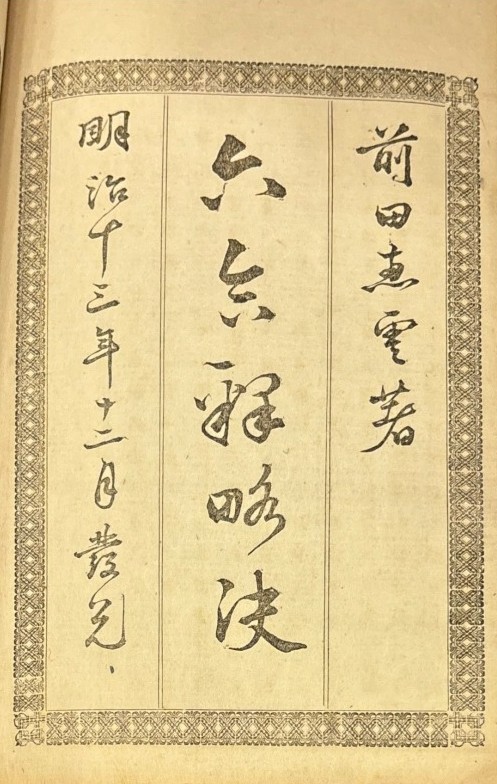 前田恵雲著
六合釋略決
明治十三年十二月發兌、